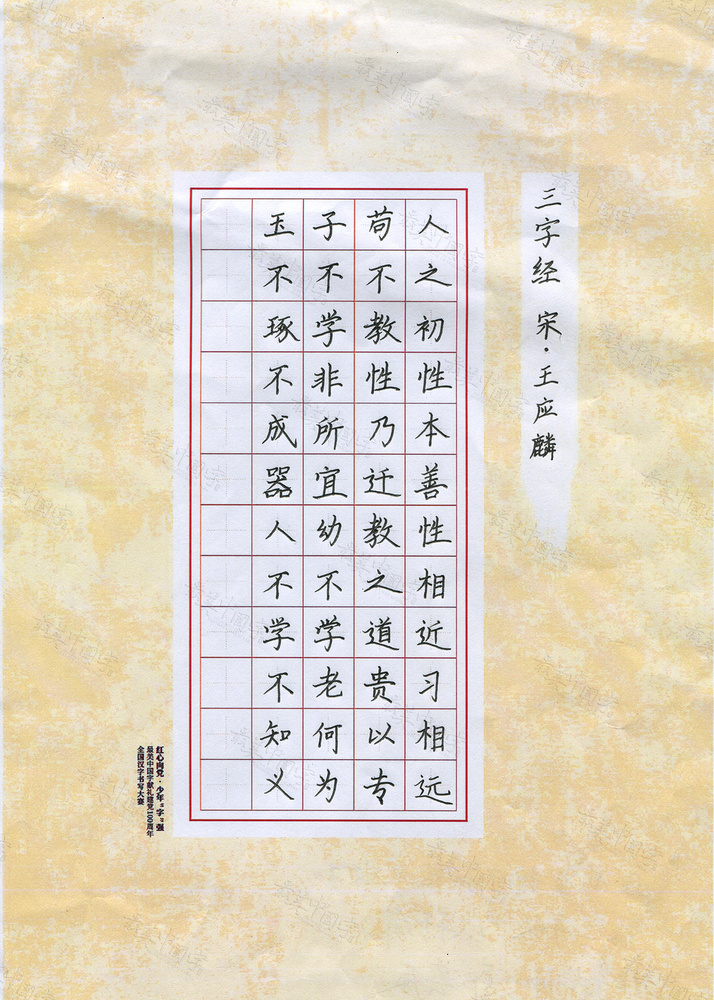 三字经 宋·王应麟
人之初性本善性相近习相远
苟不教性乃迁教之道贵以专
子不学非所宜幼不学老何为
玉不琢不成器人不学不知义
红心向党·少年“字”强
最美中国字献礼建党100周年
全国汉字书写大赛